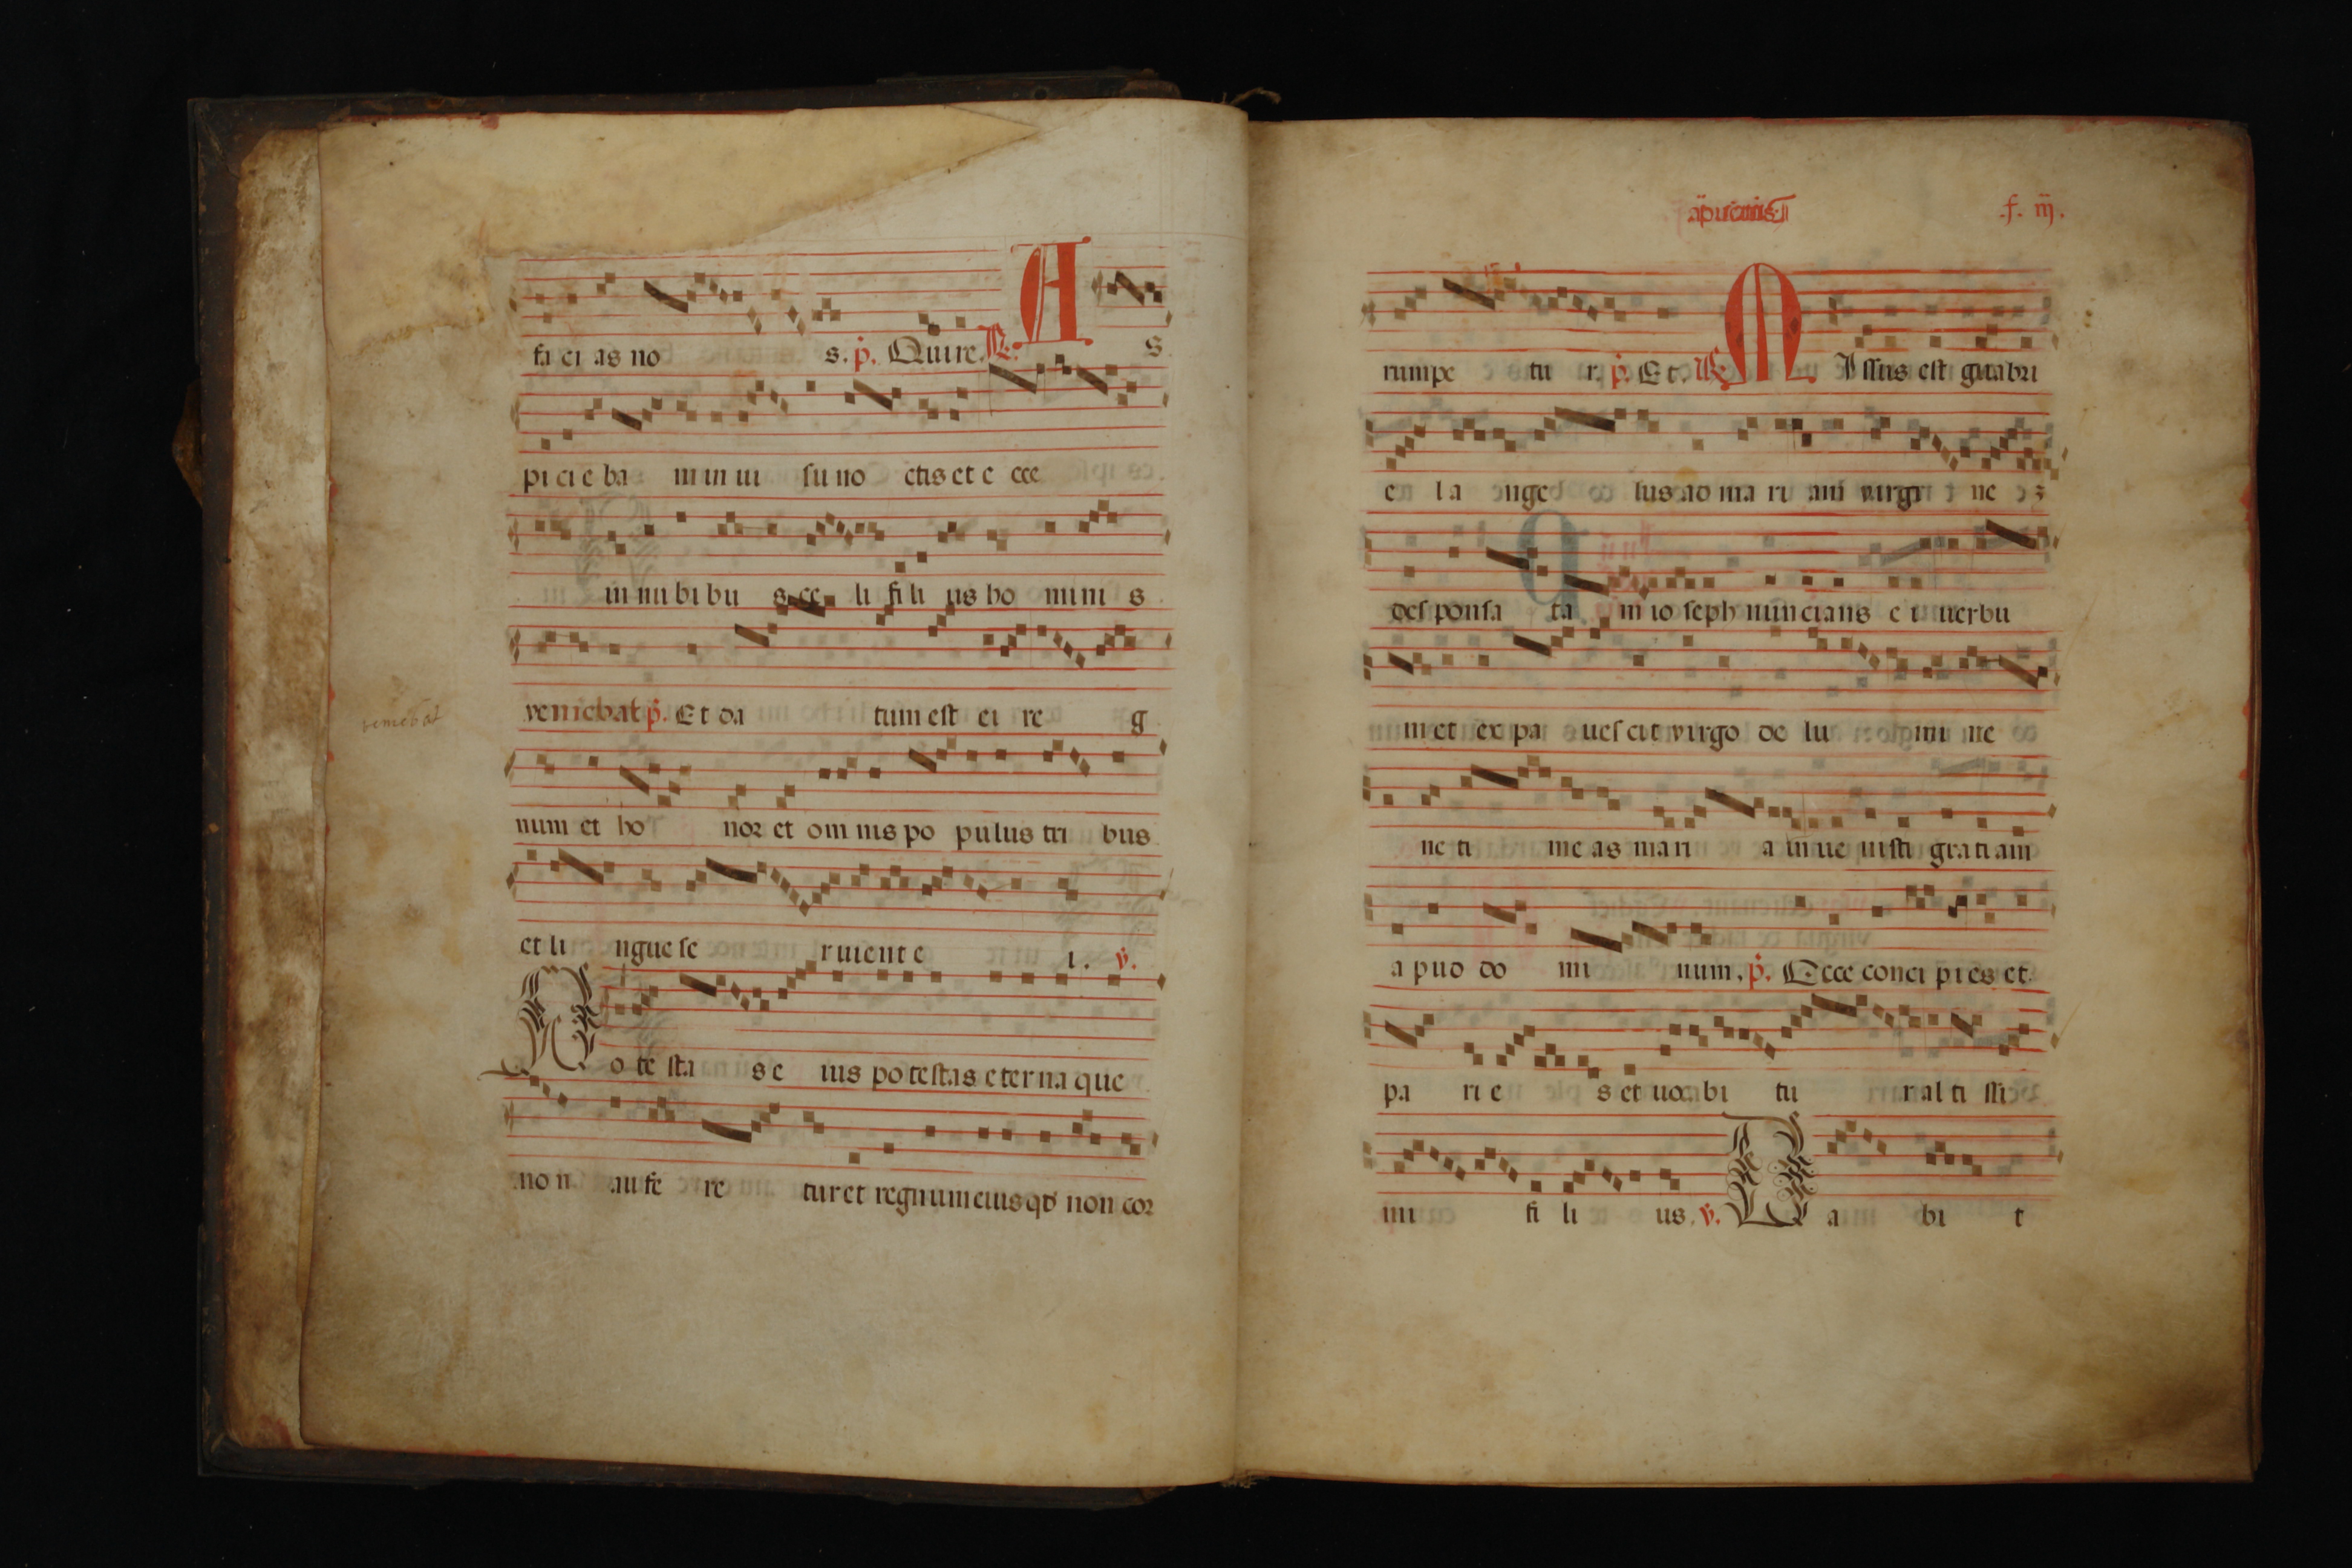 fa ci as no s. p. Qui re. R. A S
pi ci e ba m in ui su no ctis et e cce
in nu bi bu s ce li fi li us ho mi ni s
veniebat p. Et da tum est ei re g
num et ho nor et om nis po pu lus tri bus
et li ngue se r uient e i. v.
P o te sta s e ius po te stas e ter na que
no n au fe re tur et reg num eius qd non cor
veniebat
f. iij.
rumpe tu r. p. Et. R. M Issus est gabri
e l a nge lus ad ma ri am virgi ne
des ponsa ta m io seph nun cians e i uerbu
m et ex pa ues cit virgo de lu mi ne
ne ti me as mari a in ue nisti gra ti am
a pud do mi num. p. Ecce conci pi es et.
pa ri e s et uoca bi tu r al ti ssi
mi fi li us. v. D a bi t